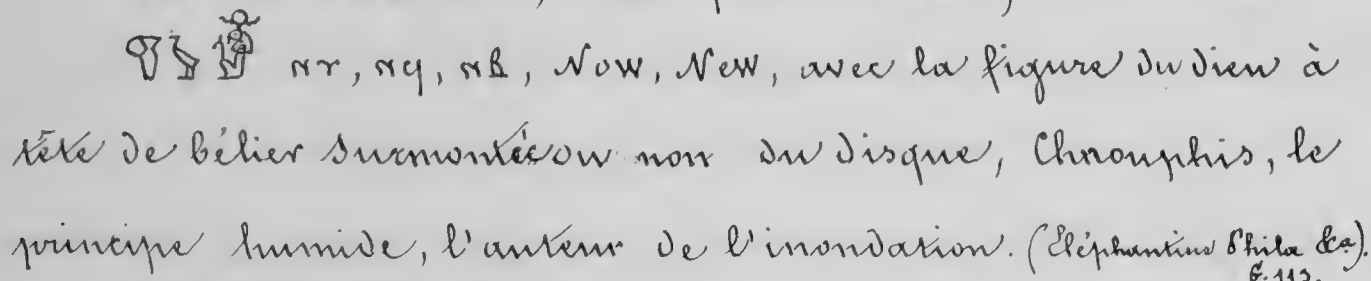 ⲛⲩ, ⲛϥ, ⲛⲃ, Nou, Neu, avec la figure du dieu à
tête de bélier surmontée ou non du disque, Chnouphis, le
principe humide, l'auteur de l'inondation. (Eléphantine Philæ &a).
113.